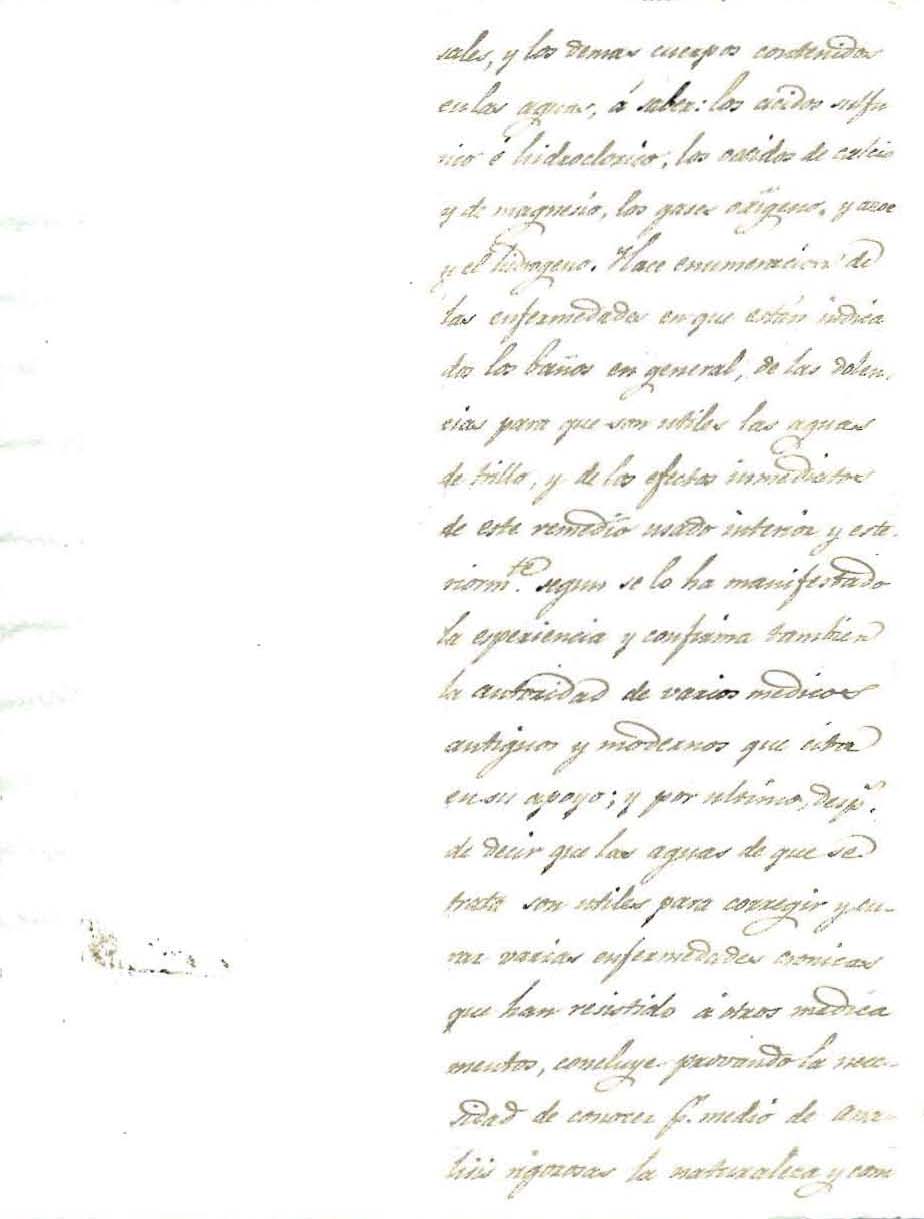 sales, y los demas cuerpos contenidos
en las aguas, á saber: los acidos sulfu
rico é hidroclorico, los oxidos de calcio
y de magnesio, los gases oxigeno, y azoe
y el hidrogeno. Hace enumeracion de
las enfermedades en que están indica
dos los baños en general, de las dolen-
cias para que son utiles las aguas
de trillo, y de los efectos inmediatos
de este remedio usado interior y este-
riormte. segun se lo ha manifestado
la esperiencia y confirma tambien
la autoridad de varios medicos
antiguos y modernos que cita
en su apoyo; y por ultimo, desp.
de decir que las aguas de que se
trata son utiles para corregir y cu-
rar varias enfermedades cronicas
que han resistido á otros medica
mentos, concluye provando la nece-
sidad de conocer pr. medio de ana-
lisis rigorosas la naturaleza y com